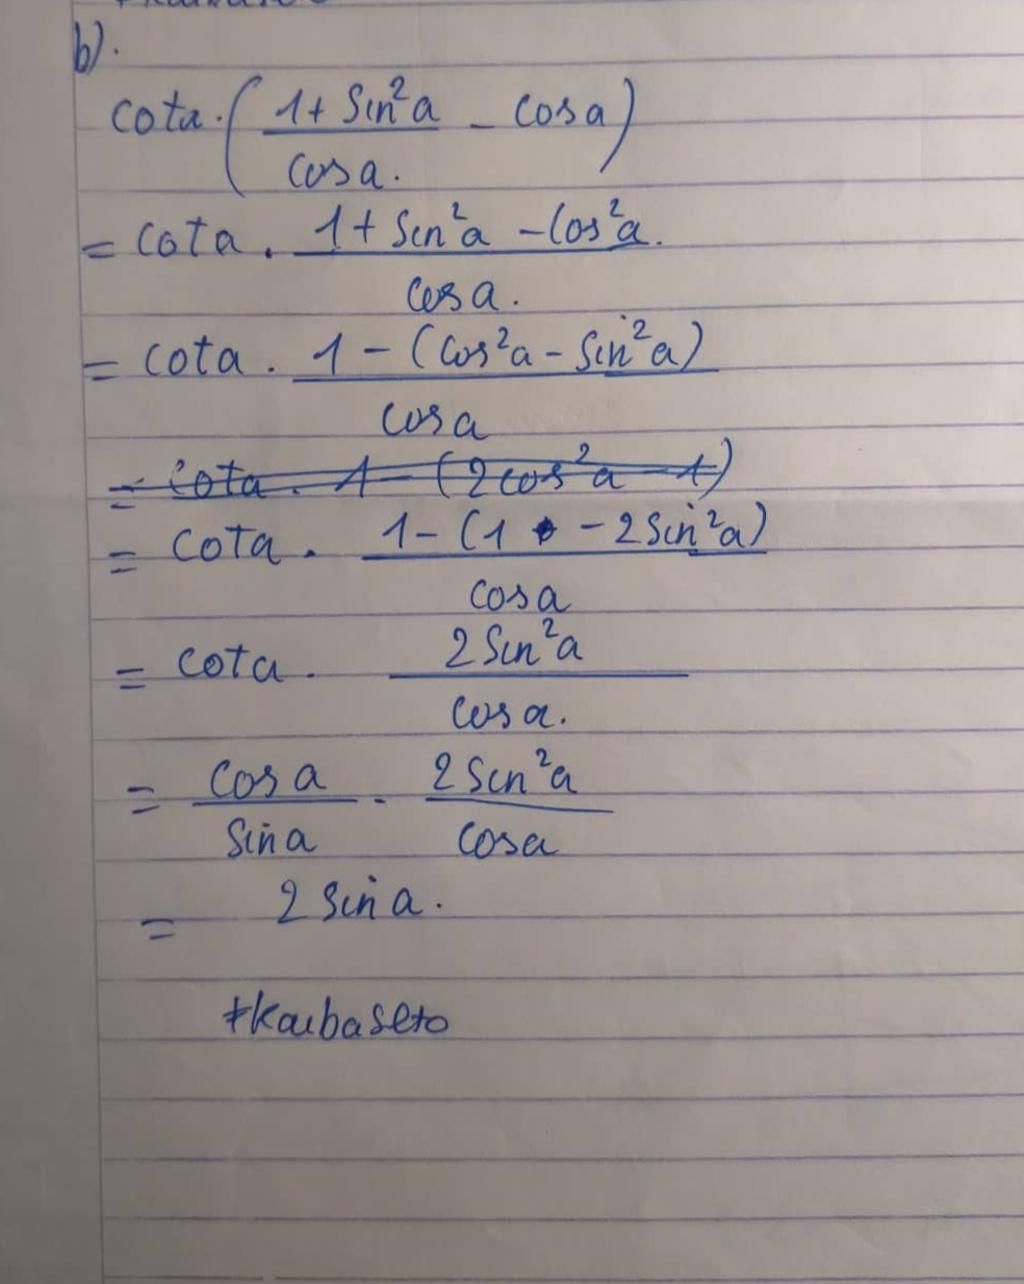 b).
cota.(1+Sin²a/cosa. - cosa)
= cota. 1+Sin²a-Cos²a./cosa.
= cota. 1-(Cos²a-Sin²a)/cosa
= cota. 1-(2cos²a-1)
= cota. 1-(1-2Sin²a)/cosa
= cota. 2Sin²a/cosa.
= cosa/Sina . 2Sin²a/cosa
= 2Sina.